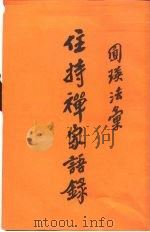 圓瑛法彙
住持禪家語錄
mtoou.info